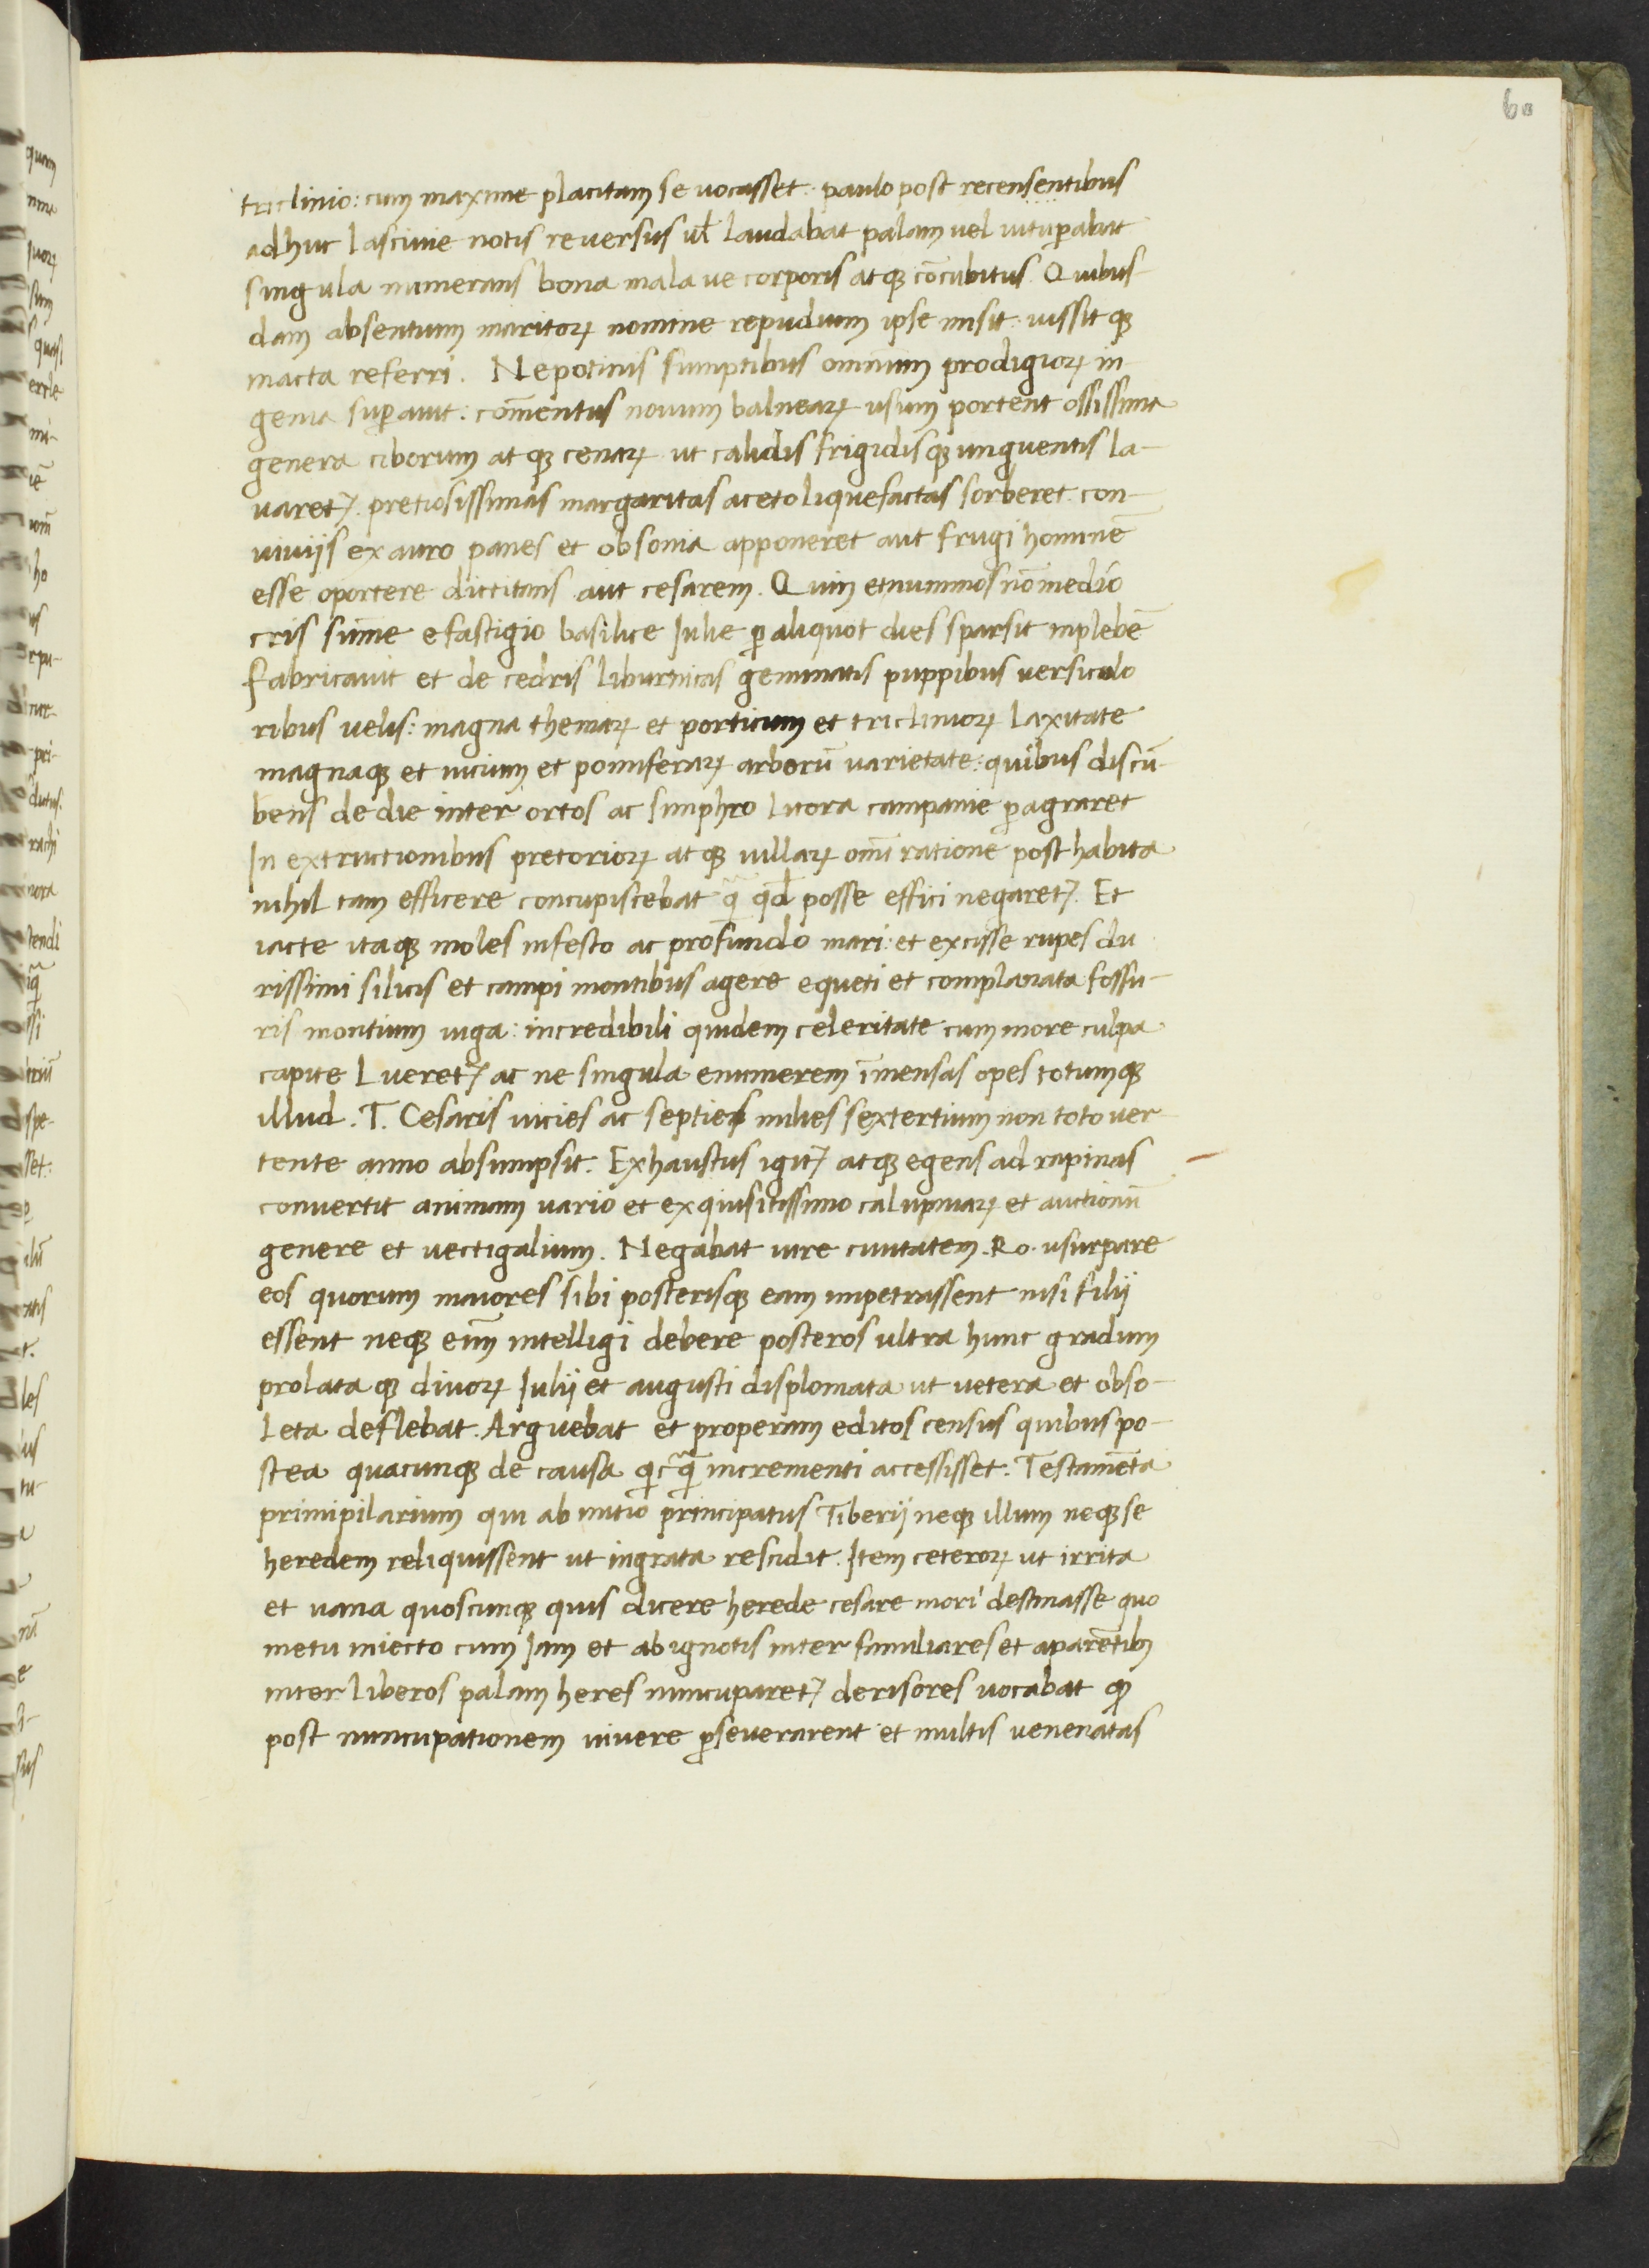 60
triclinio: cum maxime placitam se uocasset: paulo post recensentibus
adhuc lasciuie notis reuersus ul̃ laudabat palam uel uitup̱abat
singula numerans bona mala ue corporis atqꝫ cōcubitus Quibus
dam absentium maritoꝝ nomine repudium ipse misit: iussitqꝫ
inacta referri. Nepotinis sumptibus omnium prodigioꝝ in
genia sup̱auit: cōmentus nouum balneaꝝ usum portent ossissima
genera ciborum atqꝫ cenaꝝ ut calidis frigidisqꝫ unguentis la-
uaretꝫ. pretiosissimas margaritas aceto liquefactas sorberet con-
uiuijs ex auro panes et obsonia apponeret aut frugi hominē
esse oportere dictitans aut cesarem. Quin et nummos nō medio
cris sūme e fastigio basilice Iulie ꝑ aliquot dies sparsit in plebē
fabricauit et de cedris liburnicas gemmatis puppibus uersicolo
ribus uelis: magna themaꝝ et porticum et tricliniorꝝ laxitate
magnaqꝫ et uicium et pomiferaꝝ arborū uarietate: quibus discū-
bens de die inter ortos ac simphro litora campanie ꝑagraret
In extructionibus pretorioꝝ atqꝫ uillaꝝ om̄i ratione posthabita
nihil tam efficere concupiscebat q̄ qd̄ posse effici negaretꝫ. Et
iacte itaqꝫ moles infesto ac profundo mari: et excisse rupes du
rissimi silicis et campi montibus agere equeti et complanata fossu-
ris montium iuga: incredibili quidem celeritate cum more culpa
capite lueretꝫ ac ne singula enumerem īmensas opes totumqꝫ
illud. T. Cesaris uicies ac septies milies sextertium non toto uer
tente anno absumpsit. Exhaustus igitꝫ atqꝫ egens ad rapinas
conuertit animum uario et exquisitissimo calupniaꝝ et auctionū
genere et uectigalium. Negabat iure ciuitatem. Ro. usurpare
eos quorum maiores sibi posterisqꝫ eam impetrassent nisi filij
essent neqꝫ eīm intelligi debere posteros ultra hunc gradum
prolataqꝫ diuoꝝ Iulij et augusti displomata ut uetera et obso-
leta deflebat. Arguebat et properam editos census quibus po-
stea quacunqꝫ de causa qicq̄ incrementi accessisset. Testamēta
primipilarium qui ab initio principatus Tiberij neqꝫ illum neqꝫ se
heredem reliquissent ut ingrata rescidit. Item ceteroꝝ ut irrita
et uana quoscunqꝫ quis dicere herede cesare mori destinasse quo
metu iniecto cum Iam et ab ignotis inter familiares et a parētibꝫ
inter liberos palam heres nuncuparetꝫ derisores uocabat qꝫ
post nuncupationem uiuere ꝑseuerarent et multis uenenatas